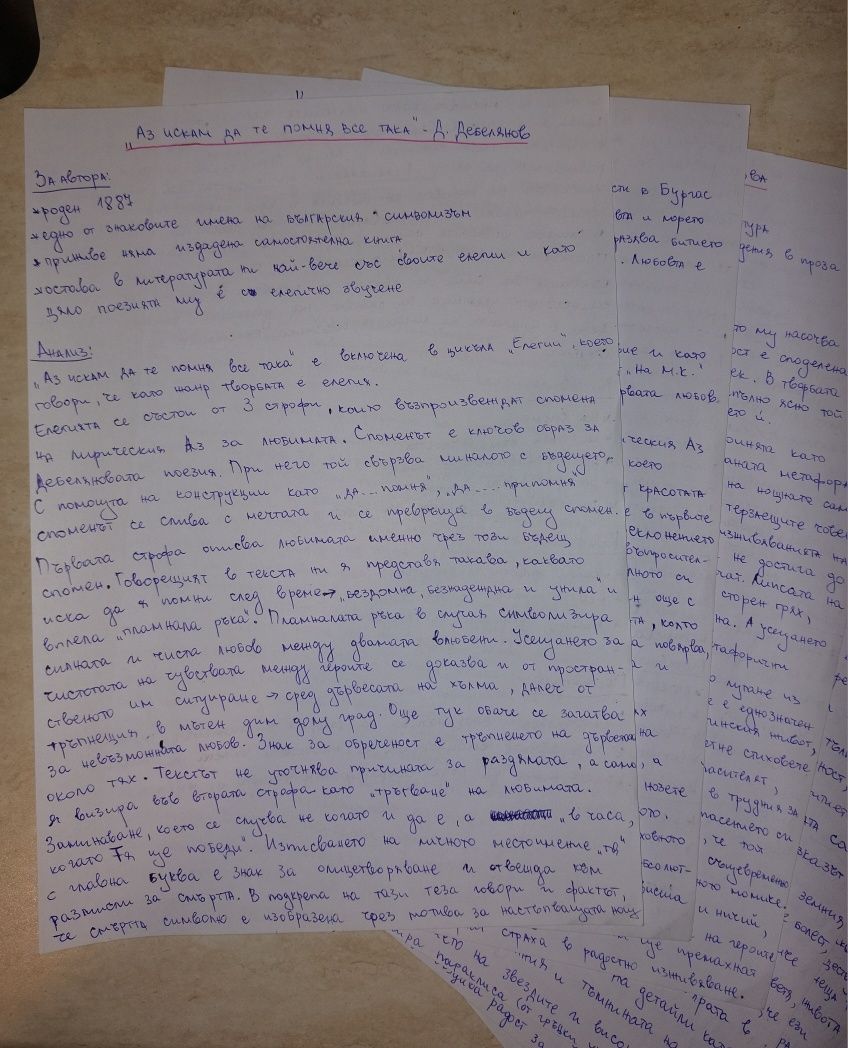 "Аз искам да те помня все така" - Д. Дебелянов
За автора:
*роден 1887
*едно от знаковите имена на българския символизъм
*приживе няма издадена самостоятелна книга
*остава в литературата ни най-вече със своите елегии и като
цяло поезията му е с елегично звучене
Анализ:
"Аз искам да те помня все така" е включена в цикъла "Елегии", което
говори, че като жанр творбата е елегия.
Елегията се състои от 3 строфи, които възпроизвеждат спомена
на лирическия Аз за любимата. Споменът е ключов образ за
Дебеляновата поезия. При него той свързва миналото с бъдещето.
С помощта на конструкции като "да...помня", "да....припомня"
споменът се слива с мечтата и се превръща в бъдещ спомен.
Първата строфа описва любимата именно чрез този бъдещ
спомен. Говорещият в текста ни я представя такава, каквато
иска да я помни след време → "бездомна, безнадеждна и унила" и
вплела "пламнала ръка". Пламналата ръка в случая символизира
силната и чиста любов между двамата влюбени. Усещането за
чистотата на чувствата между героите се доказва и от простран-
ственото им ситуиране → сред дърветата на хълма, далеч от
тръпнещия в мътен дим долу град. Още тук обаче се загатва
за невъзможната любов. Знак за обреченост е тръпненето на дърветата
около тях. Текстът не уточнява причината за раздялата, а само
я визира във втората строфа като "тръгване" на любимата.
Заминаване, което се случва не когато и да е, а "в часа,
когато Тя ще победи". Изписването на личното местоимение "тя"
с главна буква е знак за олицетворяване и отвежда към
размисли за смъртта. В подкрепа на тази теза говори и фактът,
че смъртта символно е изобразена чрез мотива за настъпващата нощ
сти в Бургас
и морето
разява битието
. Любовта е
и като
"На М.К."
рвата любов.
ическия Аз
което
красотата
е в първите
еклонението
въпросител-
лното си
още с
та, която
а повярва,
ева
тура
дения в проза
то му насочва
ост е споделена
ек. В творбата
пълно ясно той
ето ѝ.
ринята като
аната метафор
на нощните сам
терзаещите чове
изживяванията на
не достига до
чат. Липсата на
сторен грях,
на. А усещането
тафорични
о лутане из
е е еднозначен
инския живот,
етне стиховете
асителят,
в трудния за
пасението си
, че той
същевременно
ното момиче.
и ничий,
на героите
ще премахнат
страха в радостно изживяване.
та детайли като
звездите и
и тъмнината на
параклиса (от гръцки
радост за